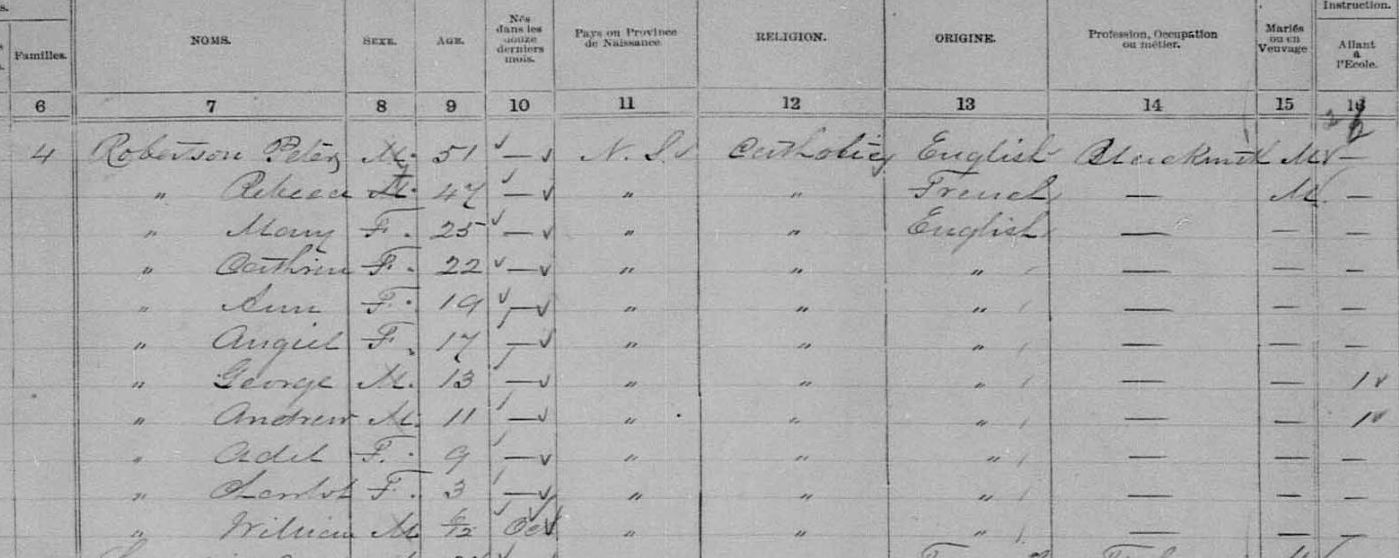 s. Instruction.
s. Familles. NOMS. SEXE. AGE. Nés dans les douze derniers mois. Pays ou Province de Naissance RELIGION. ORIGINE. Profession, Occupation ou métier. Mariés ou en Veuvage Allant à l'Ecole.
6 7 8 9 10 11 12 13 14 15 16
4 Robertson Peter M. 51 — N.S. Catholic English Blacksmith M —
" Rebecca 47 — " " French — M —
" Mary F. 25 — " " English — — —
" Cathrin F. 22 — " " " — — —
" Ann F. 19 — " " " — — —
" F. 17 — " " " — — —
" George M. 13 — " " " — — 1
" Andrew M. 11 — " " " — — 1
" Adel F. 9 — " " " — — —
" F. 3 — " " " — — —
" William M Oct " " " — — —